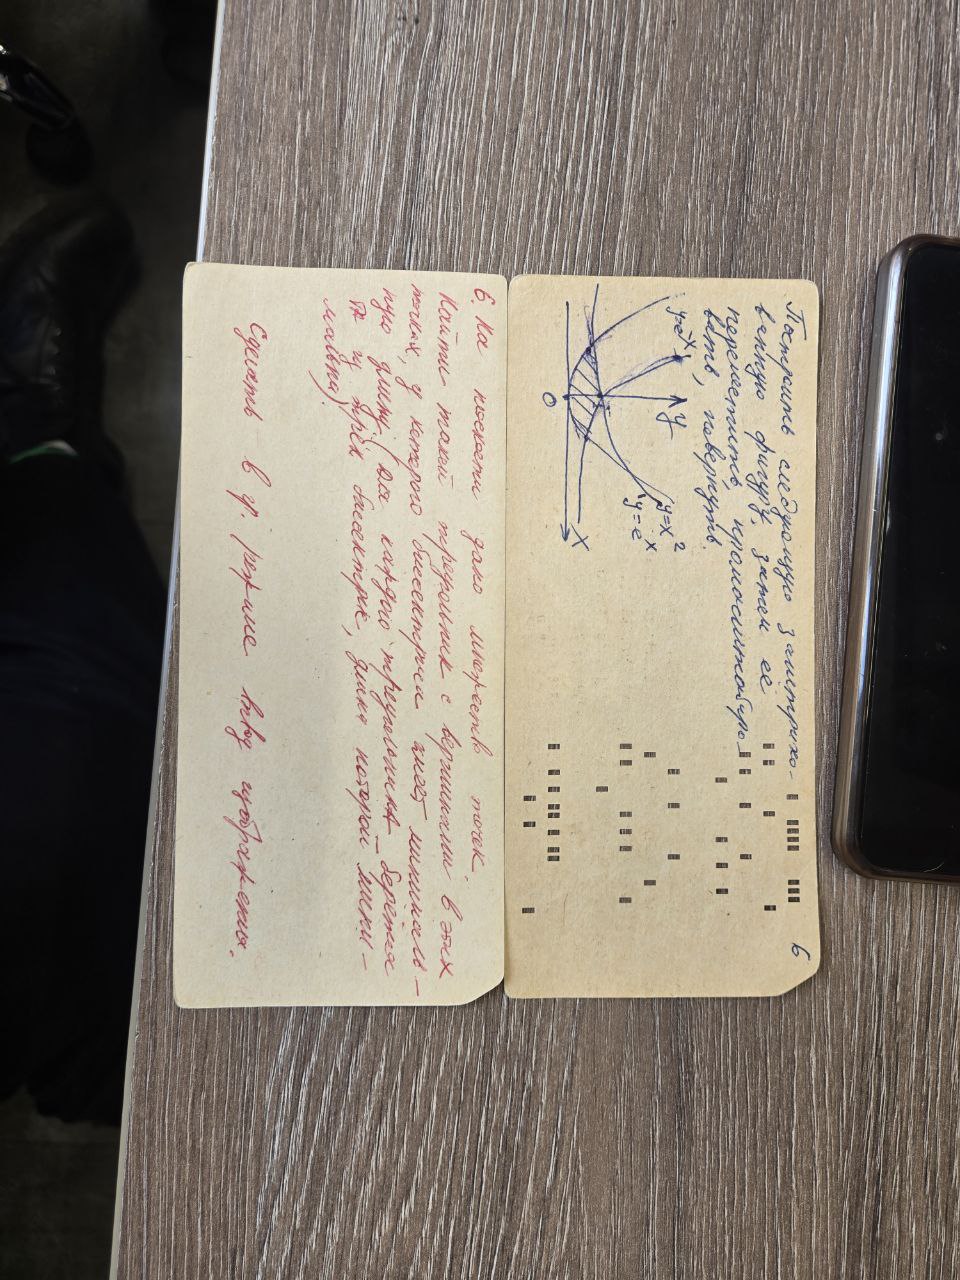 Построить следующую заштрихо-
ванную фигуру, затем её
переместить, промасштабиро-
вать, повернуть.
6
y=e^-x
y
y=x^2
y=e^x
1
x
0
6. На плоскости дано множество точек.
Найти такой треугольник с вершинами в этих
точках, у которого биссектриса имеет минималь-
ную длину. (Для каждого треугольника берётся
та из трёх биссектрис, длина которой мини-
мальна).
Сделать в гр. режиме вывод изображения.